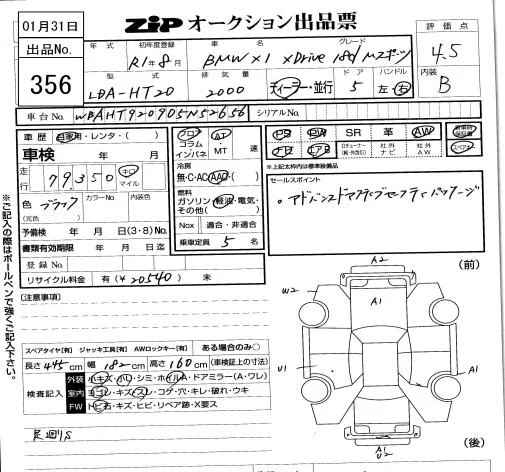 01月31日
出品No.
356
ZIP オークション出品票
評価点
4.5
内装
B
年式 初年度登録 車名 グレード
R1年8月 BMW X1 xDrive 18d Mスポーツ
型式 排気量 ドア ハンドル
LDA-HT20 2000 ディーラー・並行 5 左・右
車台No. WBAHT920905N52656 シリアルNo.
車歴 自家用・レンタ・( )
車検 年 月
走行 79,350 キロ マイル
色 ブラック カラーNo. 内装色
(元色)
予備検 年 月 日(3・8)No.
書類有効期限 年 月 日迄
登録No.
リサイクル料金 有(¥20540) 未
フロア コラム インパネ AT MT
冷房
無・C・AC・AAC・( )
燃料
ガソリン・軽油・電気・その他( )
Nox 適合・非適合
乗車定員 5 名
PS PW SR 革 AW
社外ナビ 社外AW
※上記太わ内は標準装備品
セールスポイント
。アドバンスドアクティブセーフティパッケージ
※ご記入の際はボールペンで強くご記入下さい。
[注意事項]
スペアタイヤ[有] ジャッキ工具[有] AWロックキー[有] ある場合のみ○
長さ445cm 幅182cm 高さ160cm (車検証上の寸法)
検査記入
外装 小キズ・小凹・シミ・ホイルA・ドアミラー(A・ワレ)
室内 ヨゴレ・キズ・スレ・コゲ・穴・キレ・破れ・ウキ
FW トビ石・キズ・ヒビ・リペア跡・X要ス
足廻りS
(前)
A2
W2
A1
U1
A1
A2
U2
(後)